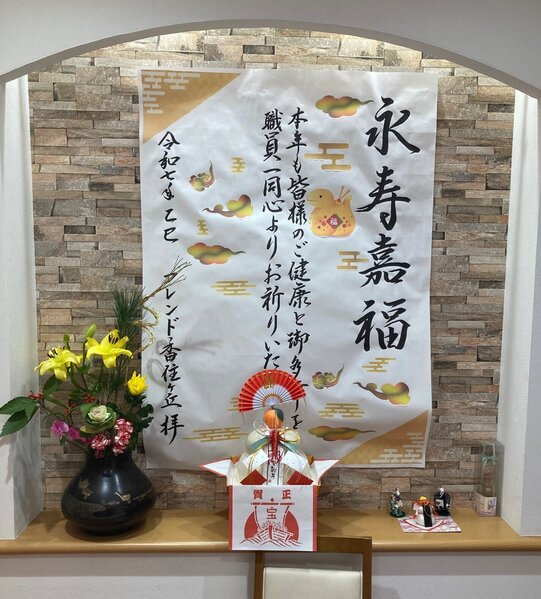 永寿嘉福
本年も皆様のご健康と御多
職員一同心よりお祈りいた
令和七年 乙巳 フレンド香住ケ丘 拝
福
賀正
宝